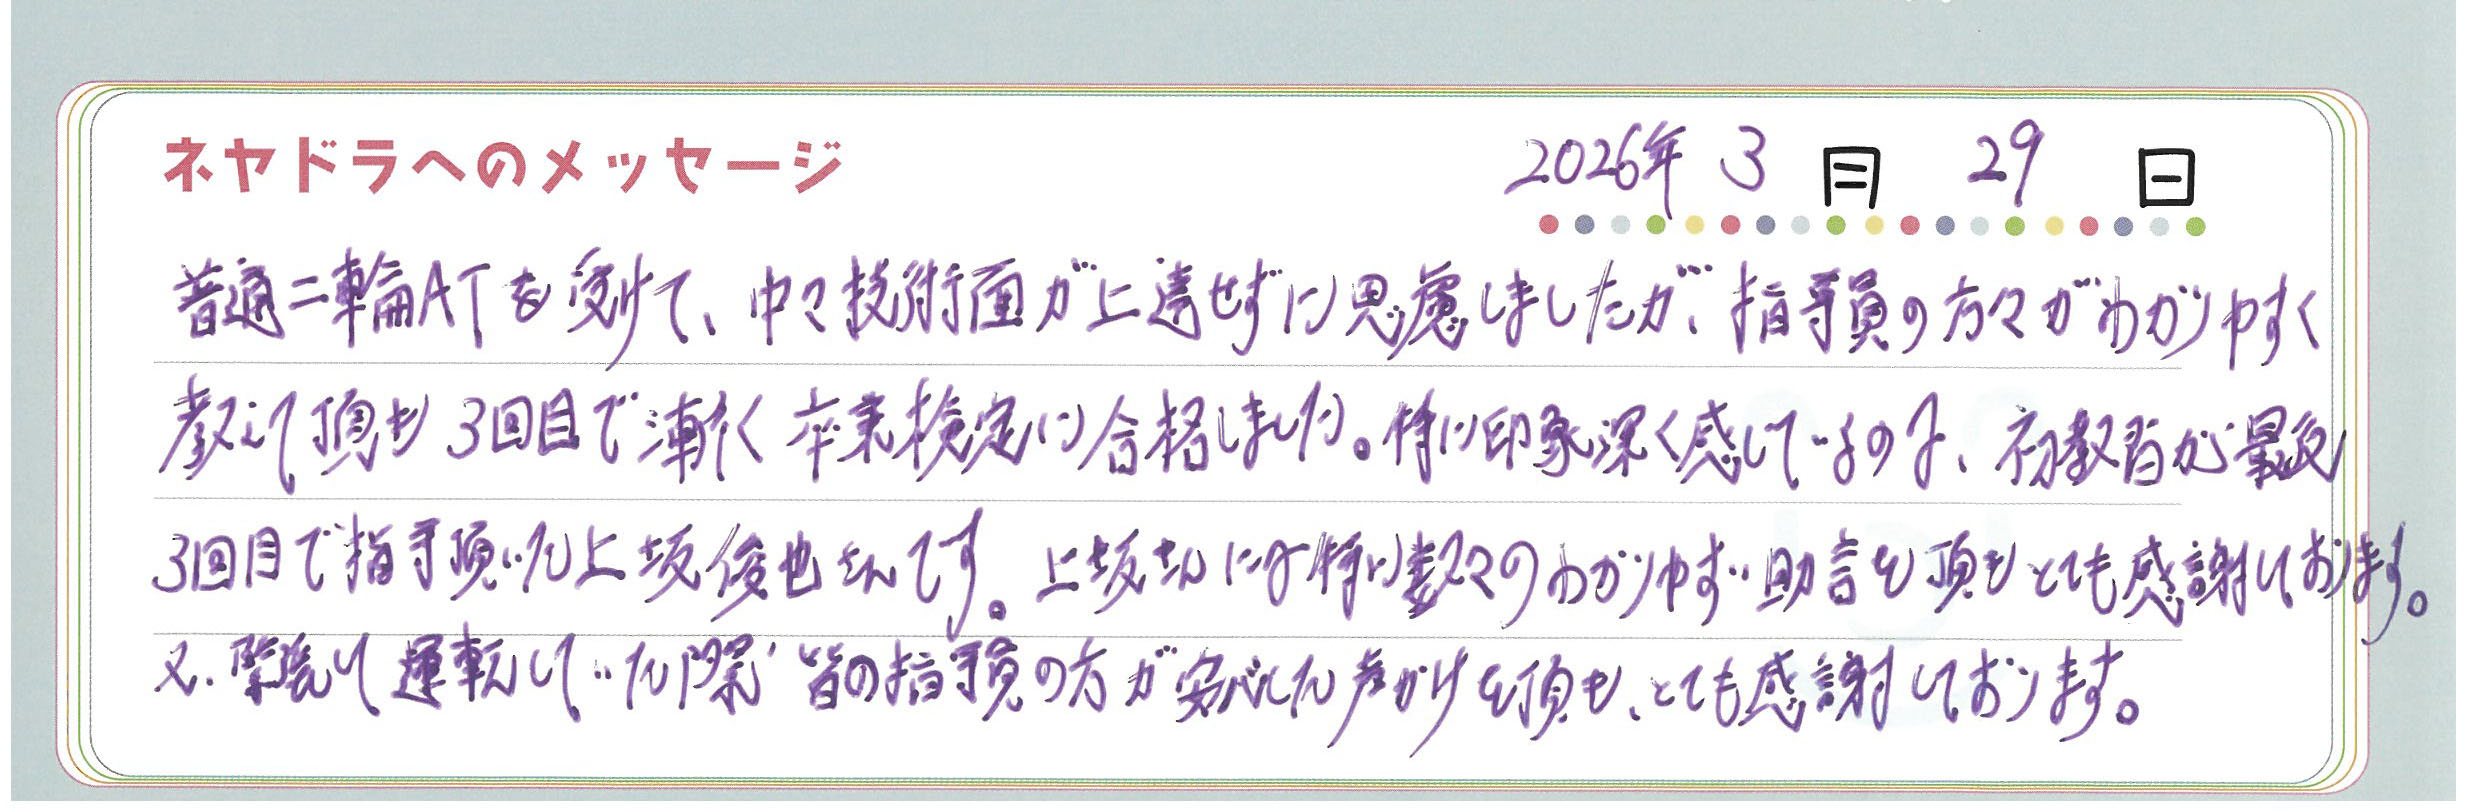 ネヤドラへのメッセージ
2026年 3 月 29 日
普通二輪ATを受けて、中々技術面が上達せずに思慮しましたが、指導員の方々がわかりやすく
教えて頂き3回目で漸く卒業検定に合格しました。特に印象深く感じているのは、初教習が最後
3回目で指導頂いた上坂俊也さんです。上坂さんには特に数々のわかりやすい助言を頂きとても感謝しております。
又、緊張して運転していた際 皆の指導員の方が安心した声かけを頂き、とても感謝しております。